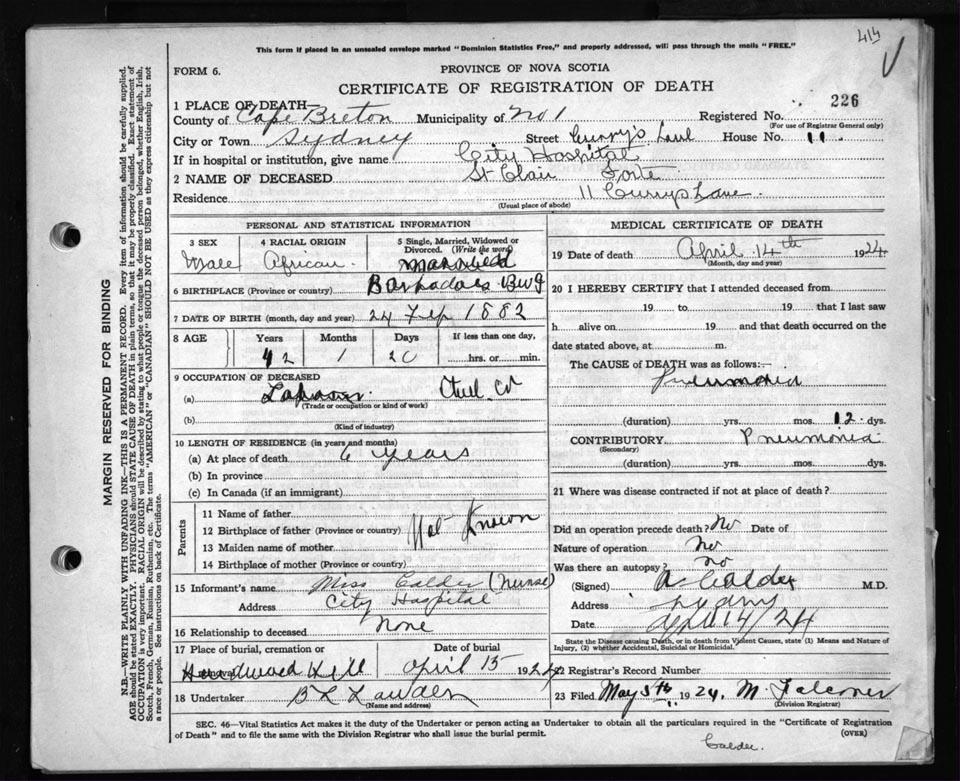 414
This form if placed in an unsealed envelope marked "Dominion Statistics Free," and properly addressed, will pass through the mails "FREE."
FORM 6.
PROVINCE OF NOVA SCOTIA
CERTIFICATE OF REGISTRATION OF DEATH
1 PLACE OF DEATH—
County of Cape Breton Municipality of No 1 Registered No. 226
(For use of Registrar General only)
City or Town Sydney Street Curry's Lane House No. 11
If in hospital or institution, give name City Hospital
2 NAME OF DECEASED St Clair Forte
Residence 11 Currys Lane
(Usual place of abode)
PERSONAL AND STATISTICAL INFORMATION
3 SEX 4 RACIAL ORIGIN 5 Single, Married, Widowed or Divorced. (Write the word)
Male African Married
6 BIRTHPLACE (Province or country) Barbadoes
7 DATE OF BIRTH (month, day and year) 24 Feb 1882
8 AGE Years Months Days If less than one day,
42 1 20 hrs. or min.
9 OCCUPATION OF DECEASED
(a) Steel Co
(Trade or occupation or kind of work)
(b)
(Kind of industry)
10 LENGTH OF RESIDENCE (in years and months)
(a) At place of death 6 years
(b) In province
(c) In Canada (if an immigrant)
Parents
11 Name of father
12 Birthplace of father (Province or country) Not Known
13 Maiden name of mother
14 Birthplace of mother (Province or country)
15 Informant's name Miss Calder (Nurse)
Address City Hospital
16 Relationship to deceased None
17 Place of burial, cremation or Date of burial
Hardwood Hill April 15 1924
18 Undertaker
(Name and address)
MEDICAL CERTIFICATE OF DEATH
19 Date of death April 14th 1924
(Month, day and year)
20 I HEREBY CERTIFY that I attended deceased from
19 to 19 that I last saw
h alive on 19 and that death occurred on the
date stated above, at m.
The CAUSE of DEATH was as follows:—
Pneumonia
(duration) yrs. mos. 12 dys.
CONTRIBUTORY Pneumonia
(Secondary)
(duration) yrs. mos. dys.
21 Where was disease contracted if not at place of death?
Did an operation precede death? No Date of
Nature of operation No
Was there an autopsy? no
(Signed) Calder M.D.
Address Sydney
Date April 14/24
State the Disease causing Death, or in death from Violent Causes, state (1) Means and Nature of
Injury, (2) whether Accidental, Suicidal or Homicidal.
22 Registrar's Record Number
23 Filed May 5th 1924. M. Falconer
(Division Registrar)
SEC. 46—Vital Statistics Act makes it the duty of the Undertaker or person acting as Undertaker to obtain all the particulars required in the "Certificate of Registration
of Death" and to file the same with the Division Registrar who shall issue the burial permit.
(OVER)
Calder.
MARGIN RESERVED FOR BINDING
N.B.—WRITE PLAINLY WITH UNFADING INK—THIS IS A PERMANENT RECORD. Every item of information should be carefully supplied.
AGE should be stated EXACTLY. PHYSICIANS should STATE CAUSE OF DEATH in plain terms, so that it may be properly classified. Exact statement of
OCCUPATION is very important. RACIAL ORIGIN will be described by stating to what people or tongue the deceased person belonged, whether English, Irish,
Scotch, French, German, Russian, Ruthenian, etc. The terms "AMERICAN" or "CANADIAN" SHOULD NOT BE USED as they express citizenship but not
a race or people. See instructions on back of Certificate.